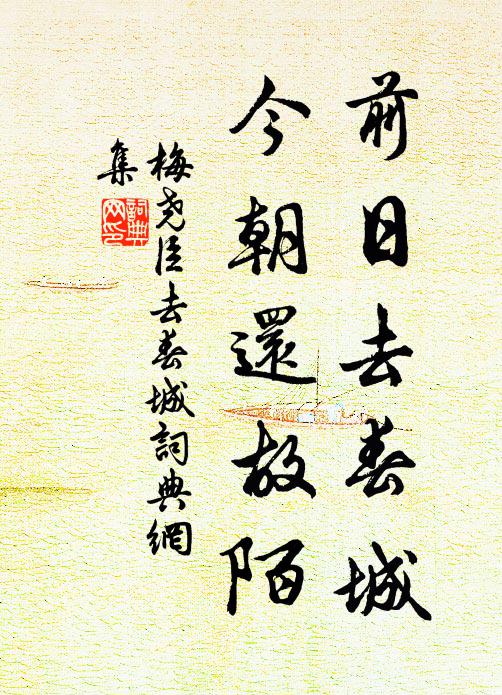 前日去春城
今朝還故陌
梅堯臣去春城詞典網
集
詞典
网印